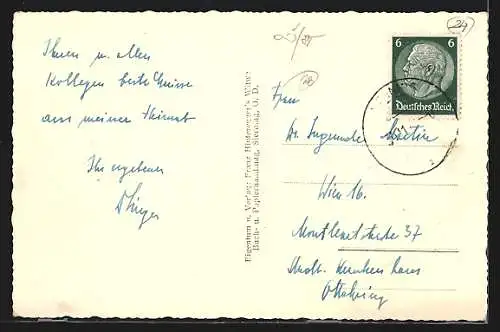 Ihnen u. allen
Kollegen beste Grüsse
aus meiner Heimat
Ihr ergebener
Eigentum u. Verlag: Franz Hinteregger's Witwe
Buch- u. Papierhandlung, Sierning, O. D.
24
28
6 6
Deutsches Reich
Frau
Dr. Martin
Wien 16.
Montleartstraße 37
Krankenhaus
Ottakring